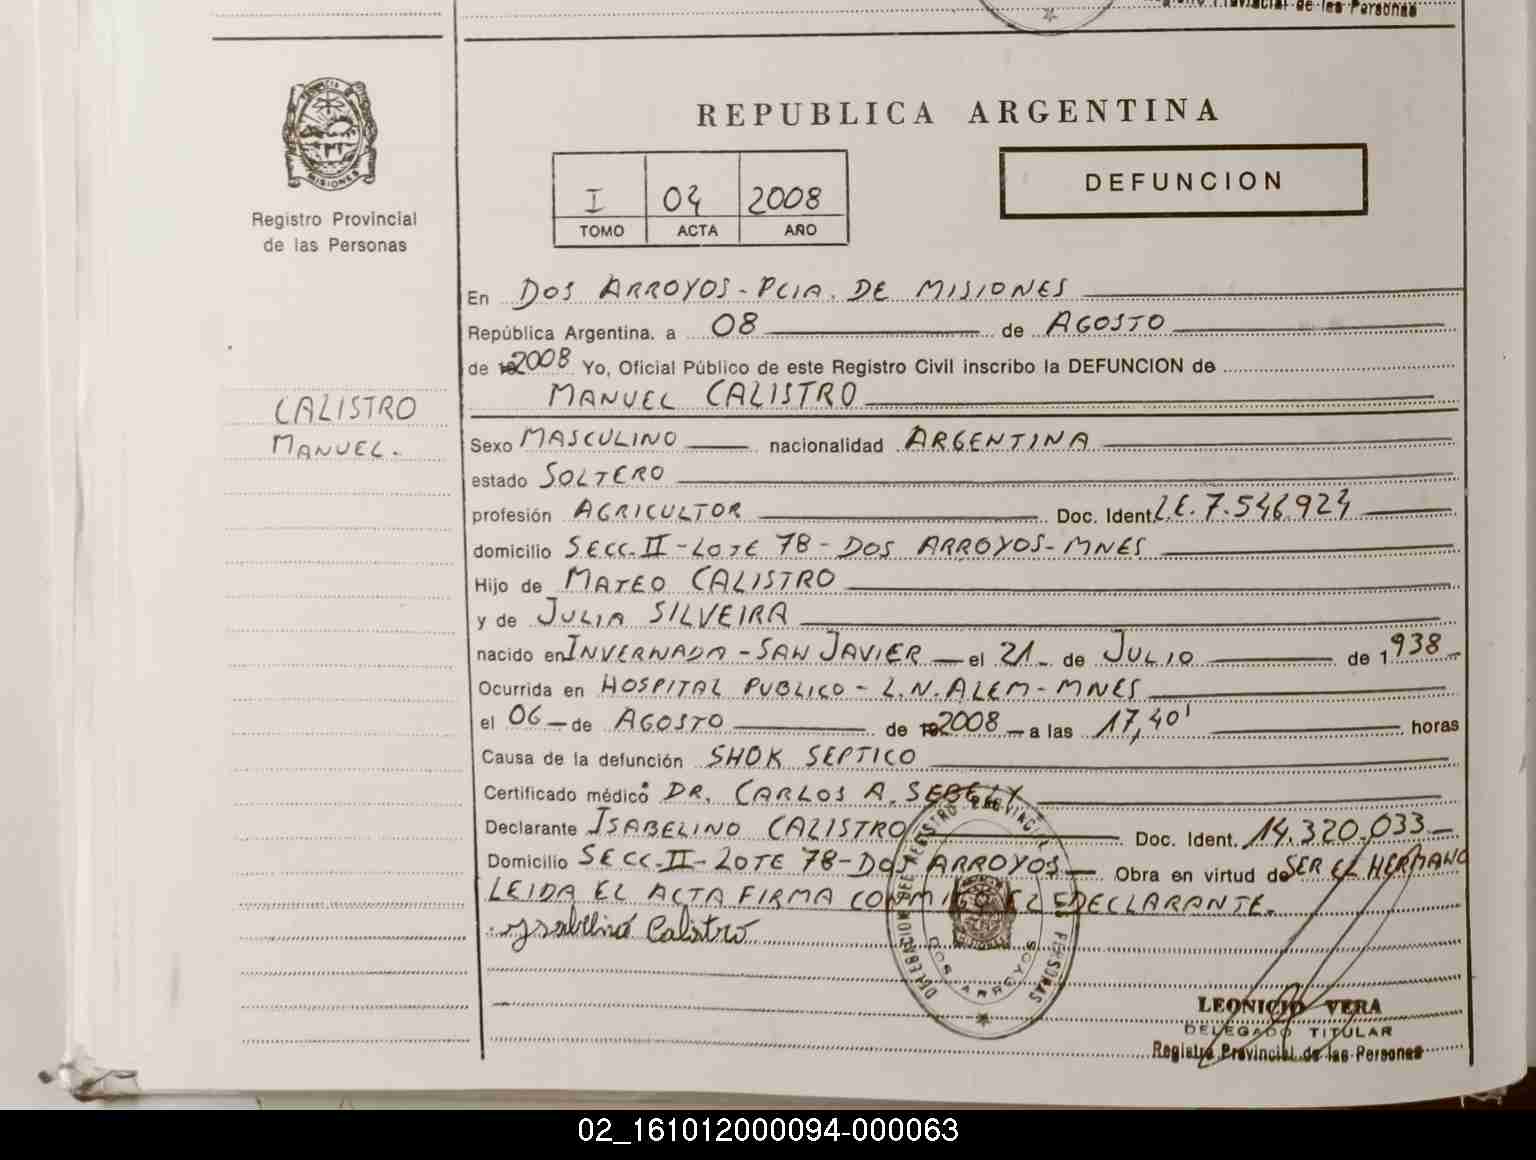 de las Personas
PROVINCIA DE
MISIONES
Registro Provincial
de las Personas
CALISTRO
MANUEL.
REPUBLICA ARGENTINA
I 04 2008
TOMO ACTA AÑO
DEFUNCION
En DOS ARROYOS - PCIA. DE MISIONES
República Argentina, a 08 de AGOSTO
de 2008 Yo, Oficial Público de este Registro Civil inscribo la DEFUNCION de
MANUEL CALISTRO
Sexo MASCULINO nacionalidad ARGENTINA
estado SOLTERO
profesión AGRICULTOR Doc. Ident. L.E. 7.546.924
domicilio SECC. II - LOTE 78 - DOS ARROYOS - MNES
Hijo de MATEO CALISTRO
y de JULIA SILVEIRA
nacido en INVERNADA - SAN JAVIER el 21 de JULIO de 1938
Ocurrida en HOSPITAL PUBLICO - L.N. ALEM - MNES
el 06 de AGOSTO de 2008 a las 17,40' horas
Causa de la defunción SHOK SEPTICO
Certificado médico DR. CARLOS A. SEBELY
Declarante ISABELINO CALISTRO Doc. Ident. 14.320.033
Domicilio SECC. II - LOTE 78 - DOS ARROYOS Obra en virtud de SER EL HERMANO
LEIDA EL ACTA FIRMA CONMIGO EL EDECLARANTE.
Ysabelino Calistro
DELEGACION DEL REGISTRO PROVINCIAL DE LAS PERSONAS
DOS ARROYOS
LEONICIO VERA
DELEGADO TITULAR
Registro Provincial de las Personas
02_161012000094-000063